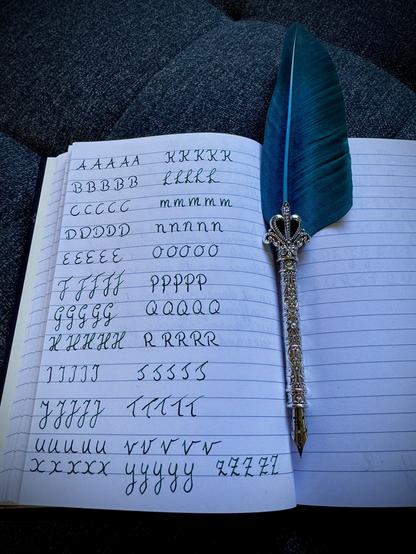 AAAAA KKKKK
BBBBB LLLLL
CCCCC mmmmm
DDDDD nnnnn
EEEEE OOOOO
FFFFF PPPPP
GGGGG QQQQQ
HHHHH RRRRR
IIIII SSSSS
JJJJJ TTTTT
uuuuu vvvvv
xxxxx yyyyy ZZZZZ